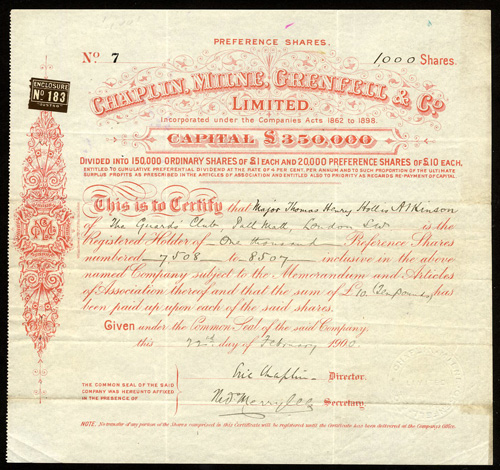 PREFERENCE SHARES.
No 7 1000 Shares.
ENCLOSURE
No 183
CHAPLIN, MILNE, GRENFELL & Co
LIMITED.
Incorporated under the Companies Acts 1862 to 1898.
CAPITAL £350,000
DIVIDED INTO 150,000 ORDINARY SHARES OF £1 EACH AND 20,000 PREFERENCE SHARES OF £10 EACH,
ENTITLED TO CUMULATIVE PREFERENTIAL DIVIDEND AT THE RATE OF 4 PER CENT. PER ANNUM AND TO SUCH PROPORTION OF THE ULTIMATE
SURPLUS PROFITS AS PRESCRIBED IN THE ARTICLES OF ASSOCIATION AND ENTITLED ALSO TO PRIORITY AS REGARDS RE-PAYMENT OF CAPITAL
This is to Certify that Major Thomas Henry Hollis Atkinson
of The Guards Club Pall Mall, London S.W. is the
Registered Holder of One thousand Preference Shares
numbered 7508 to 8507 inclusive in the above
named Company subject to the Memorandum and Articles
of Association thereof and that the sum of £10 (Ten Pounds) has
been paid up upon each of the said shares.
Given under the Common Seal of the said Company.
this 22nd day of February 1900
Eric Chaplin Director.
THE COMMON SEAL OF THE SAID
COMPANY WAS HEREUNTO AFFIXED
IN THE PRESENCE OF
Secretary.
NOTE. No transfer of any portion of the Shares comprised in this Certificate will be registered until the Certificate has been delivered at the Companies Office.